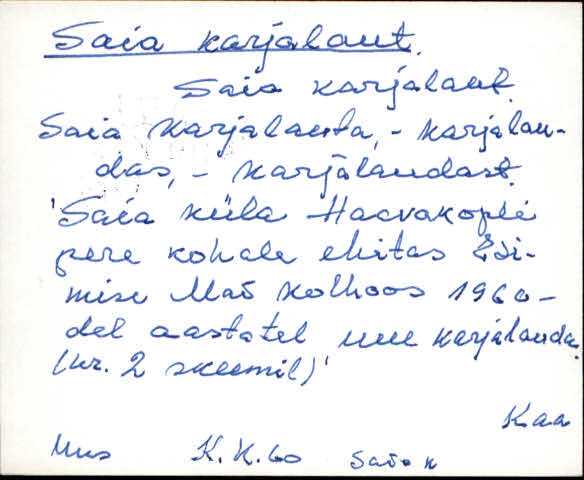 Saia karjalaut.
Saia karjalaut.
Saia karjalauta, - karjalau-
das, - karjalaudast.
'Saia küla Haavakopli
pere kohale ehitas Esi-
mise Mai kolhoos 1960-
del aastatel uue karjalauda.
(nr. 2 skeemil)'
Kaa
Mus K.K.60 Saia k